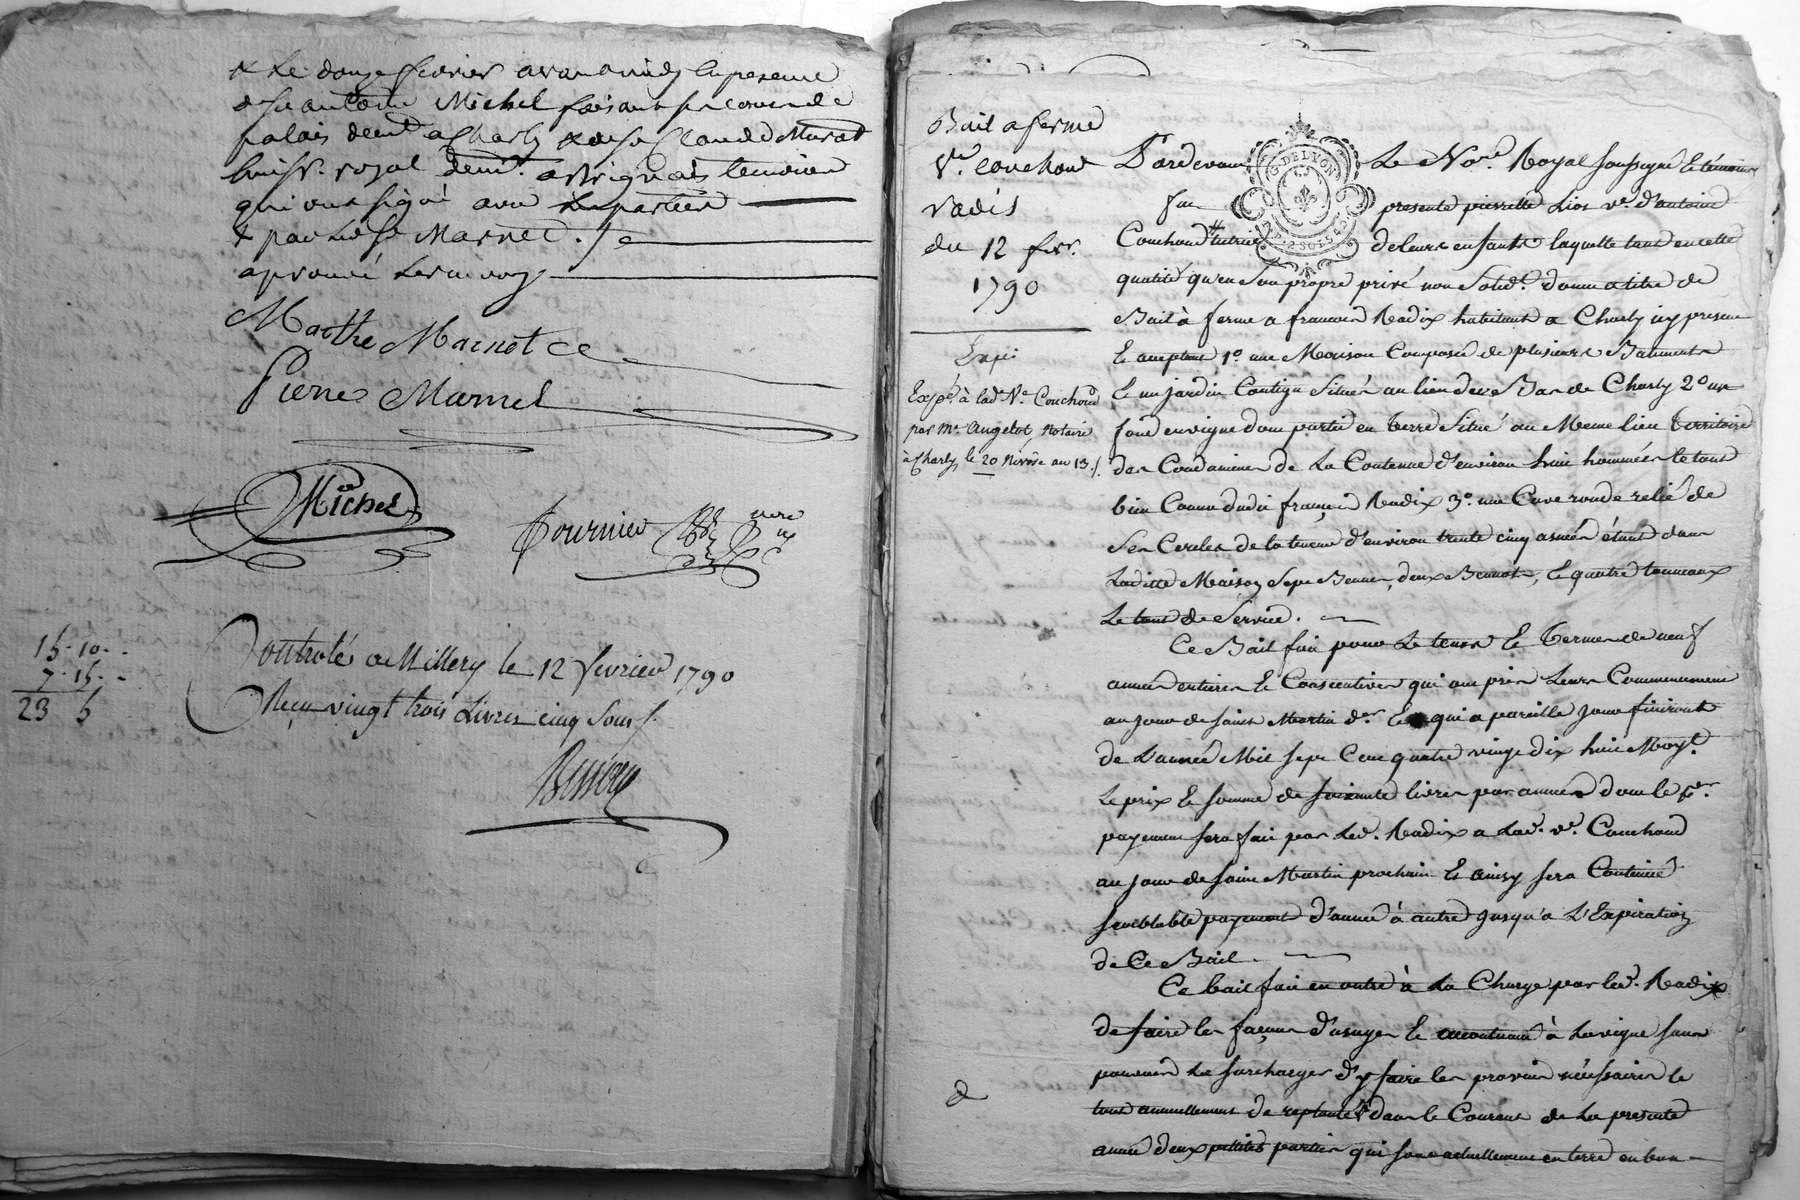 & Le douze fevrier avant midy En presence
de Sr antoine Michel faisant
palais demt a Charly & de Sr Claude Murat
huissr royal demt a Brignais temoins
qui ont signé avec Les parties
& par Le Sr Marnet. /.
aprouvé
Marthe Marnet
Pierre Marnet
Michel
Fournier nore
15-10-
7-15-
23 5
Controlé a Millery le 12 fevrier 1790
Reçu vingt trois Livres cinq Sous /.
Bail a ferme
Ve Couchoud
Radis
du 12 fvr.
1790
Expé
Expé. à lad. Ve Couchoud
par Me Angelot, Notaire
à Charly, le 20 Nivôse an 13./.
G. DE LYON
2 SOLS 4 D
Pardevant Le Nore Royal soussigné Et temoins
fut presente pierrette Lios ve. d'antoine
Couchoud tutrice de leurs enfants laquelle tant en cette
qualité qu'en Son propre privé nom Solidt. donne a titre de
Bail à ferme a francois Radix habitant a Charly icy present
Et acceptant, 1o. une Maison Composée de plusieurs Batiments
Et un jardin Contigu Situés au lieu du Bas de Charly 2o un
fond en vigne dont partie en terre Situé au Meme lieu territoire
des Condamines de La Contenue d'environ huit hommées le tout
bien Connu dudit françois Radix 3o. une Cuve ronde reliée de
Ses Cercles de la teneur d'environ trente cinq asnées étant dans
Laditte Maison Sept Bennes, deux Bennots, Et quatre tonneaux
Le tout de Service.
Ce Bail fait pour Le tems Et Terme de neuf
années entieres Et Consecutives qui ont pris Leurs Commencement
au jour de Saint Martin der. Et qui a pareille jour finiront
de L'année Mil Sept Cent quatre vingt dix huit Moyt.
Le prix Et somme de soixante livres par année dont le per.
payement sera fait par led. Radix a Lad. ve. Couchoud
au jour de saint Martin prochain Et ainsy sera Continué
semblable payement d'année à autre jusqu'a L'Expiration
de Ce Bail.
Ce bail fait en outre à La Charge par led. Radix
de faire les façons d'usages Et accoutumés à La vigne sans
pouvoir La surcharger d'y faire les provins nécessaires le
tout annuellement de replanter dans le Courant de La presente
année deux petites parties qui sont actuellement en terre en bon